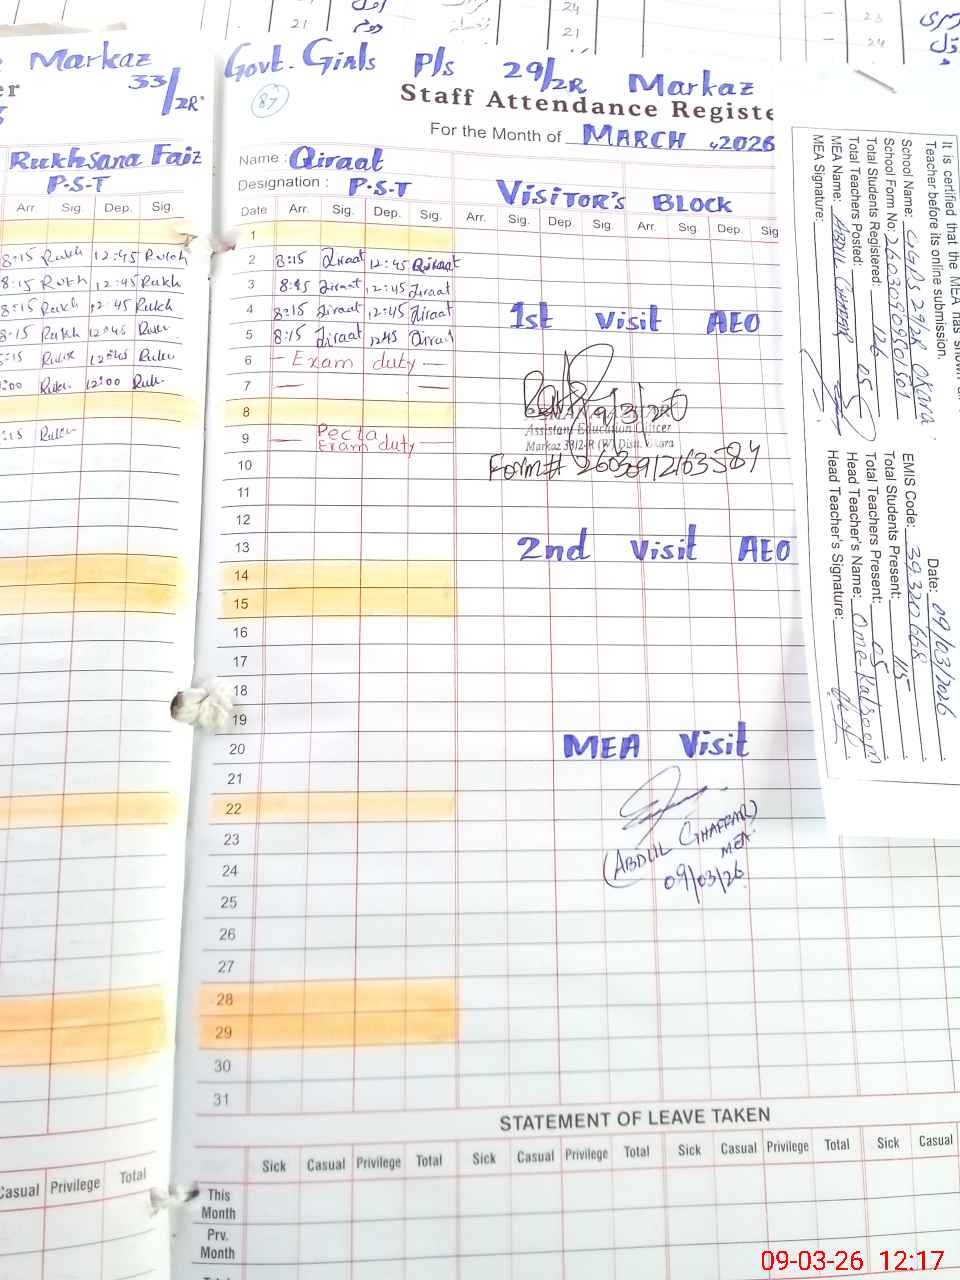 21
24
21
23
24
Markaz
33/2R
Rukhsana Faiz
P-S-T
Arr. Sig. Dep. Sig.
8:15 Rukh 12:45 Rukh
8:15 Rukh 12:45 Rukh
8:15 Rukh 12:45 Rukh
8:15 Rukh 12:45
12:45
:00 12:00
:15
Casual Privilege Total
Govt. Girls P/s 29/2R Markaz
87
Staff Attendance Registe
For the Month of MARCH, 2026
Name : Qiraat
Designation : P-S-T
VISITOR'S BLOCK
Date Arr. Sig. Dep. Sig. Arr. Sig. Dep. Sig. Arr. Sig. Dep. Sig
1
2 8:15 Qiraat 12:45 Qiraat
3 8:15 Qiraat 12:45 Qiraat
4 8:15 Qiraat 12:45 Qiraat
5 8:15 Qiraat 12:45 Qiraat
6 — Exam duty —
7 — —
8
9 — Pecta Exam duty —
10
11
12
13
14
15
16
17
18
19
20
21
22
23
24
25
26
27
28
29
30
31
1st Visit AEO
Assistant Education Officer
Form# 2603091216358
2nd Visit AEO
MEA Visit
(ABDUL GHAFFAR)
MEA
09/03/26
STATEMENT OF LEAVE TAKEN
Sick Casual Privilege Total Sick Casual Privilege Total Sick Casual Privilege Total Sick Casual
This Month
Prv. Month
It is certified that the MEA has shown
Teacher before its online submission.
Date: 09/03/2026
School Name: GGPS 29/2R OKara.
EMIS Code: 39320668
School Form No:
Total Students Registered: 126
Total Students Present: 115
Total Teachers Posted: 05
Total Teachers Present: 05
MEA Name: ABDUL GHAFFAR
Head Teacher's Name: Ome Kalsoom
MEA Signature:
Head Teacher's Signature:
09-03-26 12:17